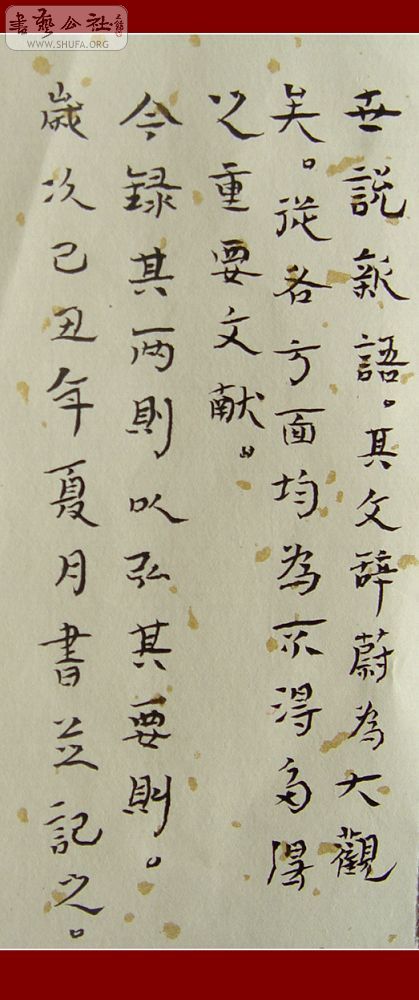 書藝公社
WWW.SHUFA.ORG
世説新語。其文辞蔚為大觀
矣。從各方面均為不得多得
之重要文献。
今録其两則以弘其要則。
歲次己丑年夏月書並記之。